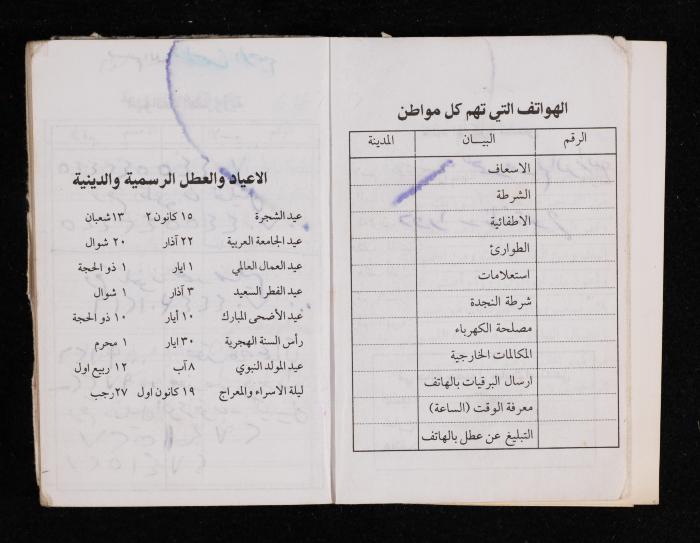 الهواتف التي تهم كل مواطن
الرقم البيـــان المدينة
الاسعاف
الشرطة
الاطفائية
الطوارئ
استعلامات
شرطة النجدة
مصلحة الكهرباء
المكالمات الخارجية
ارسال البرقيات بالهاتف
معرفة الوقت (الساعة)
التبليغ عن عطل بالهاتف
الاعياد والعطل الرسمية والدينية
عيد الشجرة ١٥ كانون ٢ ١٣ شعبان
عيد الجامعة العربية ٢٢ آذار ٢٠ شوال
عيد العمال العالمي ١ ايار ١ ذو الحجة
عيد الفطر السعيد ٣ آذار ١ شوال
عيد الأضحى المبارك ١٠ أيار ١٠ ذو الحجة
رأس السنة الهجرية ٣٠ ايار ١ محرم
عيد المولد النبوي ٨ آب ١٢ ربيع اول
ليلة الاسراء والمعراج ١٩ كانون اول ٢٧ رجب